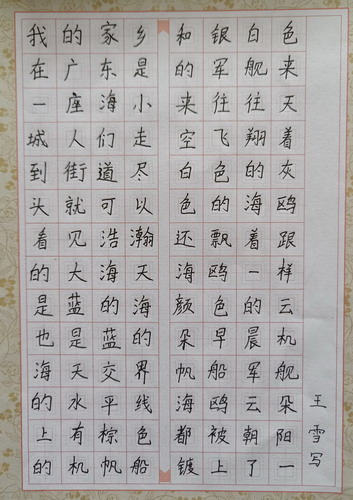 我的家乡
在广东是
一座海小
城人们走
到街道尽
头就可以
看见浩瀚
的大海天
是蓝的海
也是蓝的
海天交界
的水平线
上有棕色
的机帆船
和银白色
的军舰来
来往往天
空飞翔着
白色的灰
色的海鸥
还飘着跟
海鸥一样
颜色的云
朵早晨机
帆船军舰
海鸥云朵
都被朝阳
镀上了一
王雪写